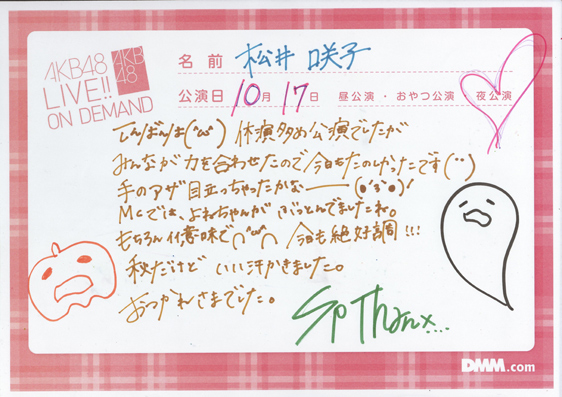 AKB48
LIVE!!
ON DEMAND
AKB
48
名前 松井 咲子
公演日 10月 17日 昼公演・おやつ公演・夜公演
こんばんは(´ω`) 休演多め公演でしたが
みんなが力を合わせたので今日もたのしかったです(¨)
手のアザ目立っちゃったかな
MCでは、よねちゃんが ぶっとんでましたね。
もちろんイイ意味で 今日も絶好調!!!
秋だけど いい汗かきました。
おつかれさまでした。
Sp Thanx...
DMM.com